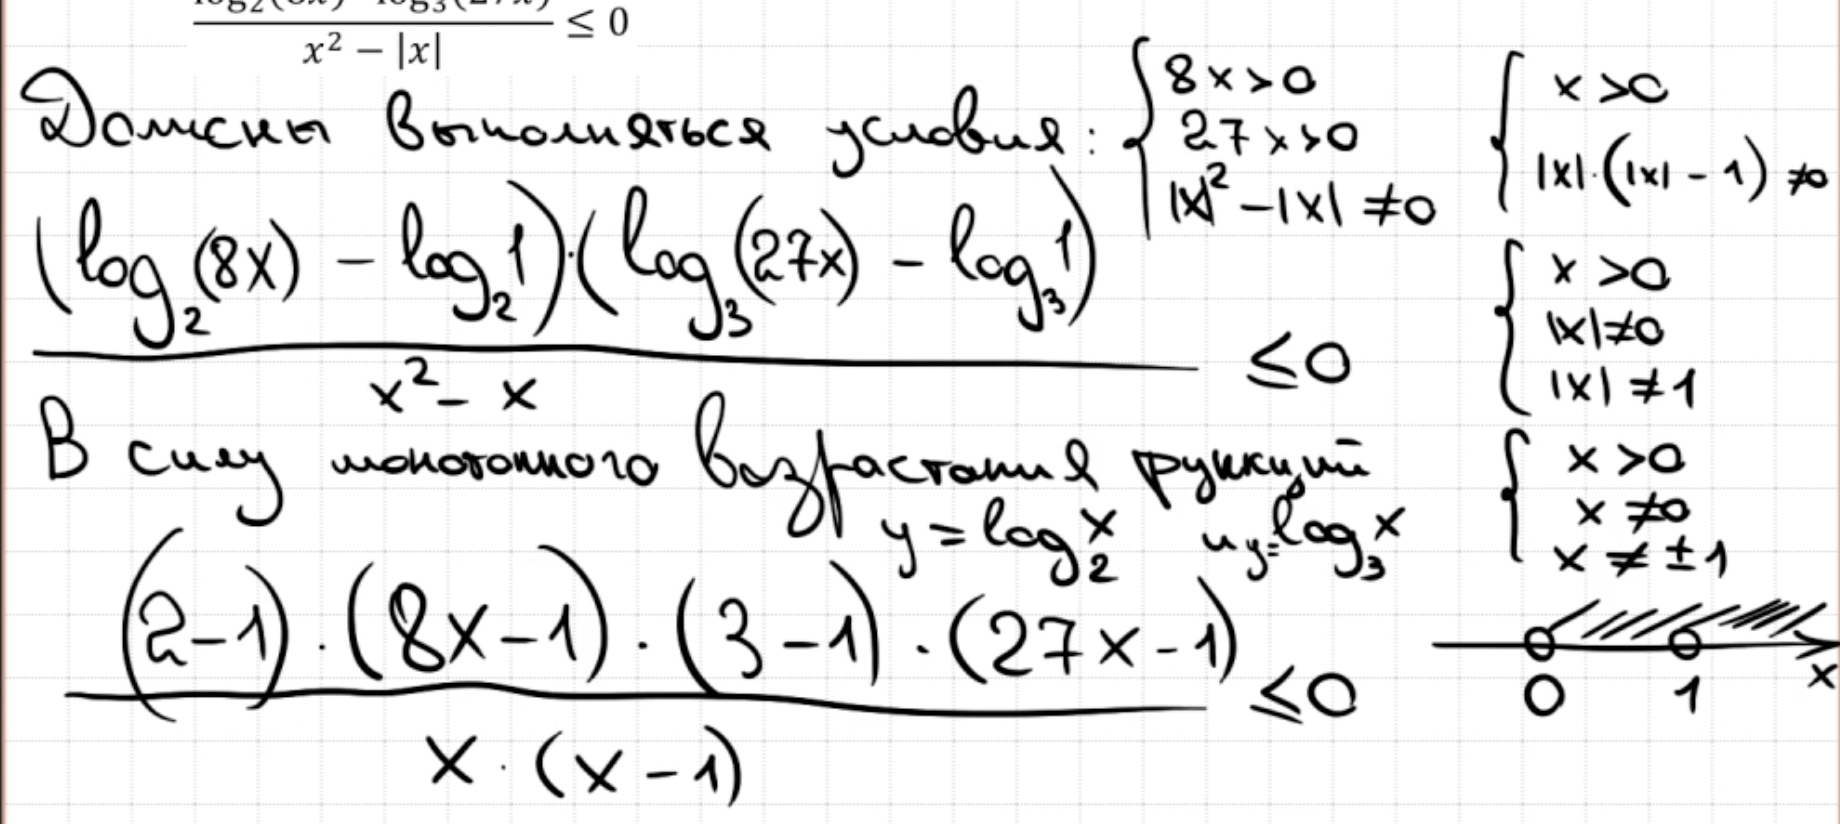 log₂(8x) · log₃(27x)
x² − |x|
≤ 0
Должны выполняться условия:
{ 8x>0
27x>0
|x|² − |x| ≠ 0
{ x>0
|x|·(|x| − 1) ≠ 0
(log₂(8x) − log₂1)·(log₃(27x) − log₃1)
x² − x
≤ 0
{ x>0
|x|≠0
|x|≠1
В силу монотонного возрастания функций
y = log₂x и y=log₃x
{ x>0
x≠0
x≠±1
(2−1)·(8x−1)·(3−1)·(27x−1)
x·(x−1)
≤ 0
0 1 x